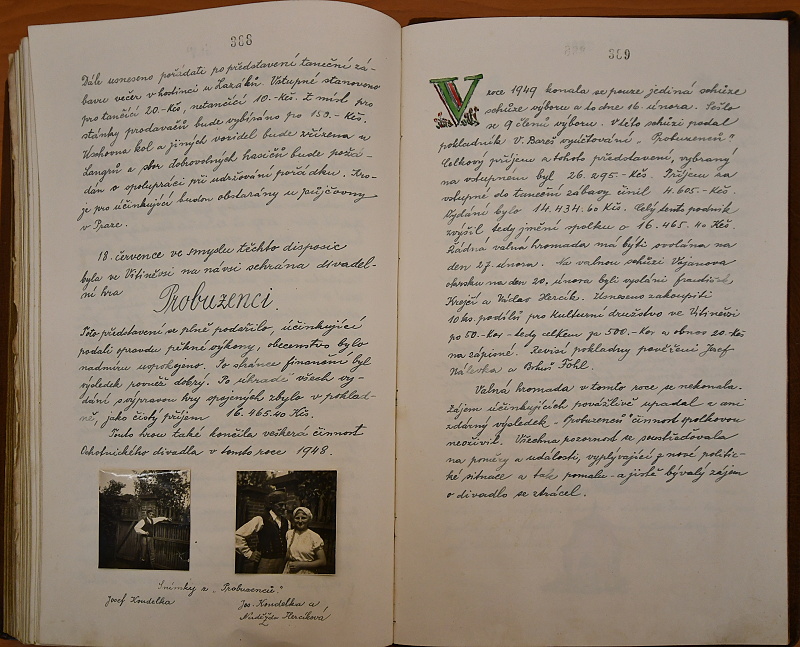 368
Dále usneseno pořádati po představení taneční zá-
bavu večer v hostinci u Lazáků. Vstupné stanoveno
pro tančící 20.-Kčs, netančící 10.-Kčs. Z míst pro
stánky prodavačů bude vybíráno po 150.-Kčs.
Uschovna kol a jiných vozidel bude zřízena u
Langrů a sbor dobrovolných hasičů bude požá-
dán o spolupráci při udržování pořádku. Kro-
je pro účinkující budou obstarány u půjčovny
v Praze.
18. července ve smyslu těchto disposic
byla ve Vitiněvsi na návsi sehrána divadel-
ní hra
Probuzenci.
Toto představení se plně podařilo, účinkující
podali opravdu pěkné výkony, obecenstvo bylo
nadmíru uspokojeno. Po stránce finanční byl
výsledek rovněž dobrý. Po úhradě všech vy-
dání s výpravou hry spojených zbylo v poklad-
ně, jako čistý příjem 16.465.40 Kčs.
Touto hrou také končila veškerá činnost
Ochotnického divadla v tomto roce 1948.
Snímky z „Probuzenců."
Josef Koudelka
Jos. Koudelka a
Naděžda Hercíková
369
V roce 1949 konala se pouze jediná schůze
schůze výboru a to dne 16. února. Sešlo
se 9 členů výboru. V této schůzi podal
pokladník V. Bareš vyúčtování „Probuzenců".
Celkový příjem z tohoto představení, vybraný
na vstupném byl 26.295.-Kčs. Příjem za
vstupné do taneční zábavy činil 4.605.-Kčs.
Vydání bylo 14.434.60 Kčs. Celý tento podnik
zvýšil tedy jmění spolku o 16.465.40 Kčs.
Řádná valná hromada má býti svolána na
den 27. února. Na valnou schůzi Vojanova
okrsku na den 20. února byli vysláni František
Krejčí a Václav Hercík. Usneseno zakoupiti
10 ks. podílů pro Kulturní družstvo ve Vitiněvsi
po 50.-Kčs - tedy celkem za 500.-Kčs a obnos 20.-Kčs
na zápisné. Revisí pokladny pověřeni Josef
Náleska a Bohuš Föhl.
Valná hromada v tomto roce se nekonala.
Zájem účinkujících povážlivě upadal a ani
zdárný výsledek „Probuzenců" činnost spolkovou
neoživil. Všechna pozornost se soustřeďovala
na poměry a události, vyplývající z nové politic-
ké situace a tak pomalu - a jistě bývalý zájem
o divadlo se ztrácel.